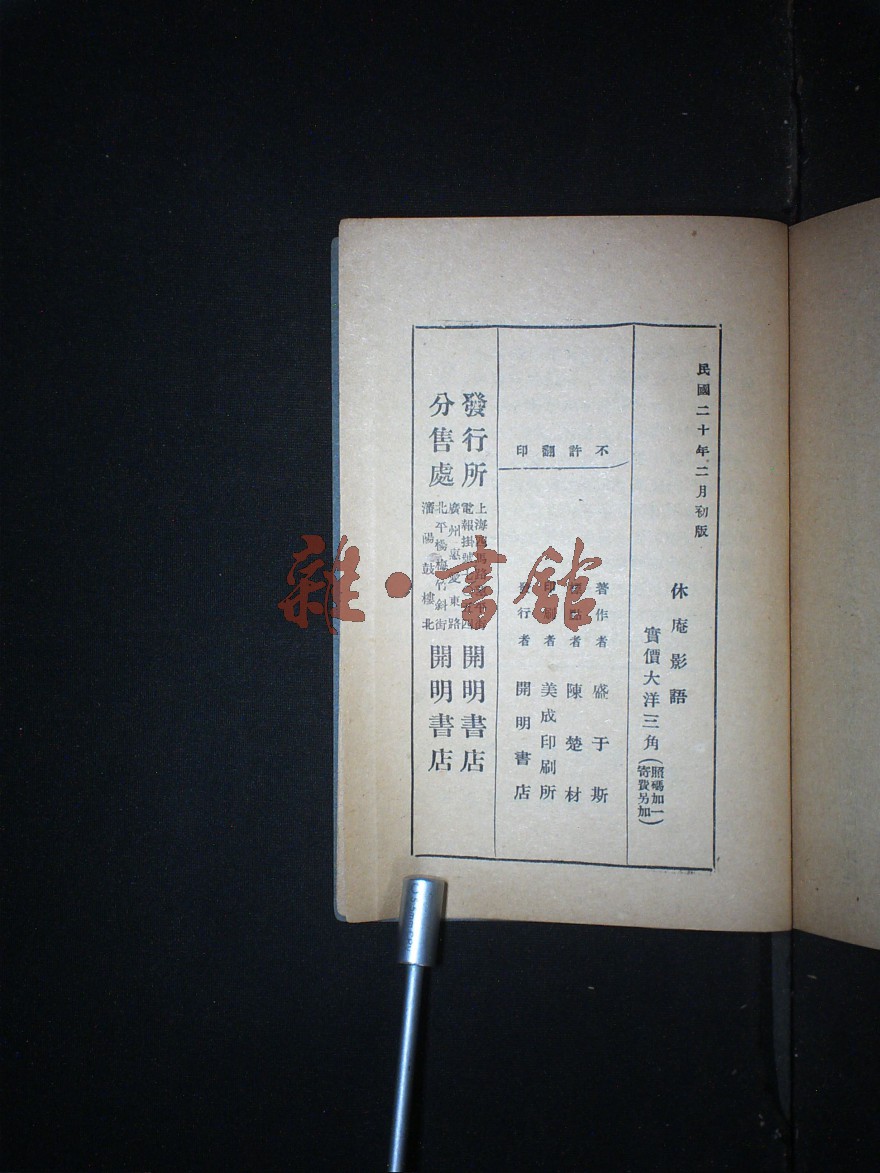 民國二十年二月初版
休庵影語
實價大洋三角(照碼加一寄費另加)
不許翻印
著作者 盛于斯
標點者 陳楚材
印刷者 美成印刷所
發行者 開明書店
發行所
上海四馬路
電報掛號
開明書店
分售處
廣州惠愛東路
北平楊梅竹斜街
瀋陽鼓樓北
開明書店
雜·書館